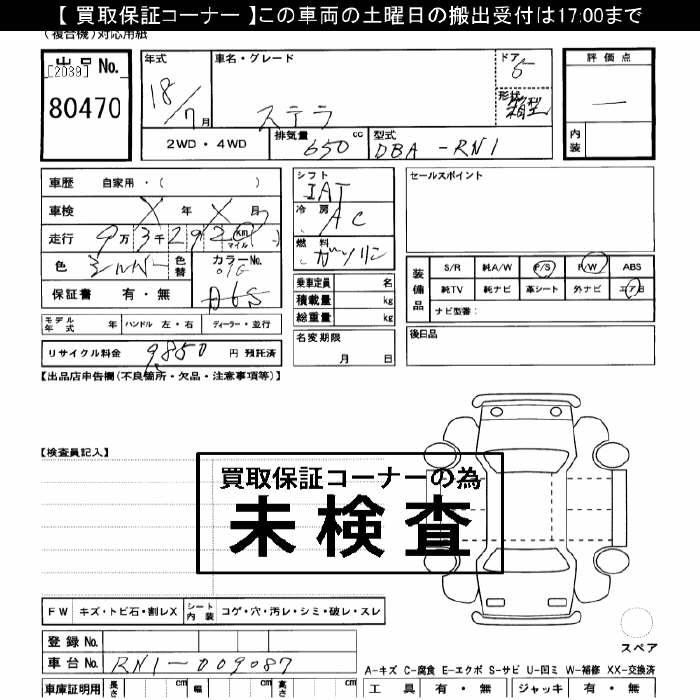 【 買取保証コーナー 】この車両の土曜日の搬出受付は17:00まで
(複合機)対応用紙
出品 No.
[2039]
80470
年式
18/7月
車名・グレード
ステラ
ドア
5
形状
箱型
評価点
—
内装
2WD・4WD
排気量 650 cc
型式 DBA-RN1
車歴 自家用・( )
車検 X 年 X 月
走行 9万3千292 km マイル
色 シルバー 色替 カラーNo.
D6S
保証書 有・無
シフト
IAT
冷房
AC
燃料
ガソリン
乗車定員 名
積載量 kg
総重量 kg
セールスポイント
装備品
S/R 純A/W P/S P/W ABS
純TV 純ナビ 革シート 外ナビ エアB
ナビ型番:
モデル年式 年 ハンドル 左・右 ディーラー・並行
リサイクル料金 9,850 円 預託済
名変期限
月 日
後日品
【出品店申告欄(不良箇所・欠品・注意事項等)】
【検査員記入】
買取保証コーナーの為
未検査
FW キズ・トビ石・割レX シート内装 コゲ・穴・汚レ・シミ・破レ・スレ
登録 No.
車台 No. RN1-009087
スペア
A-キズ C-腐食 E-エクボ S-サビ U-凹ミ W-補修 XX-交換済
車庫証明用 長さ cm 幅 cm 高さ cm
工具 有・無 ジャッキ 有・無